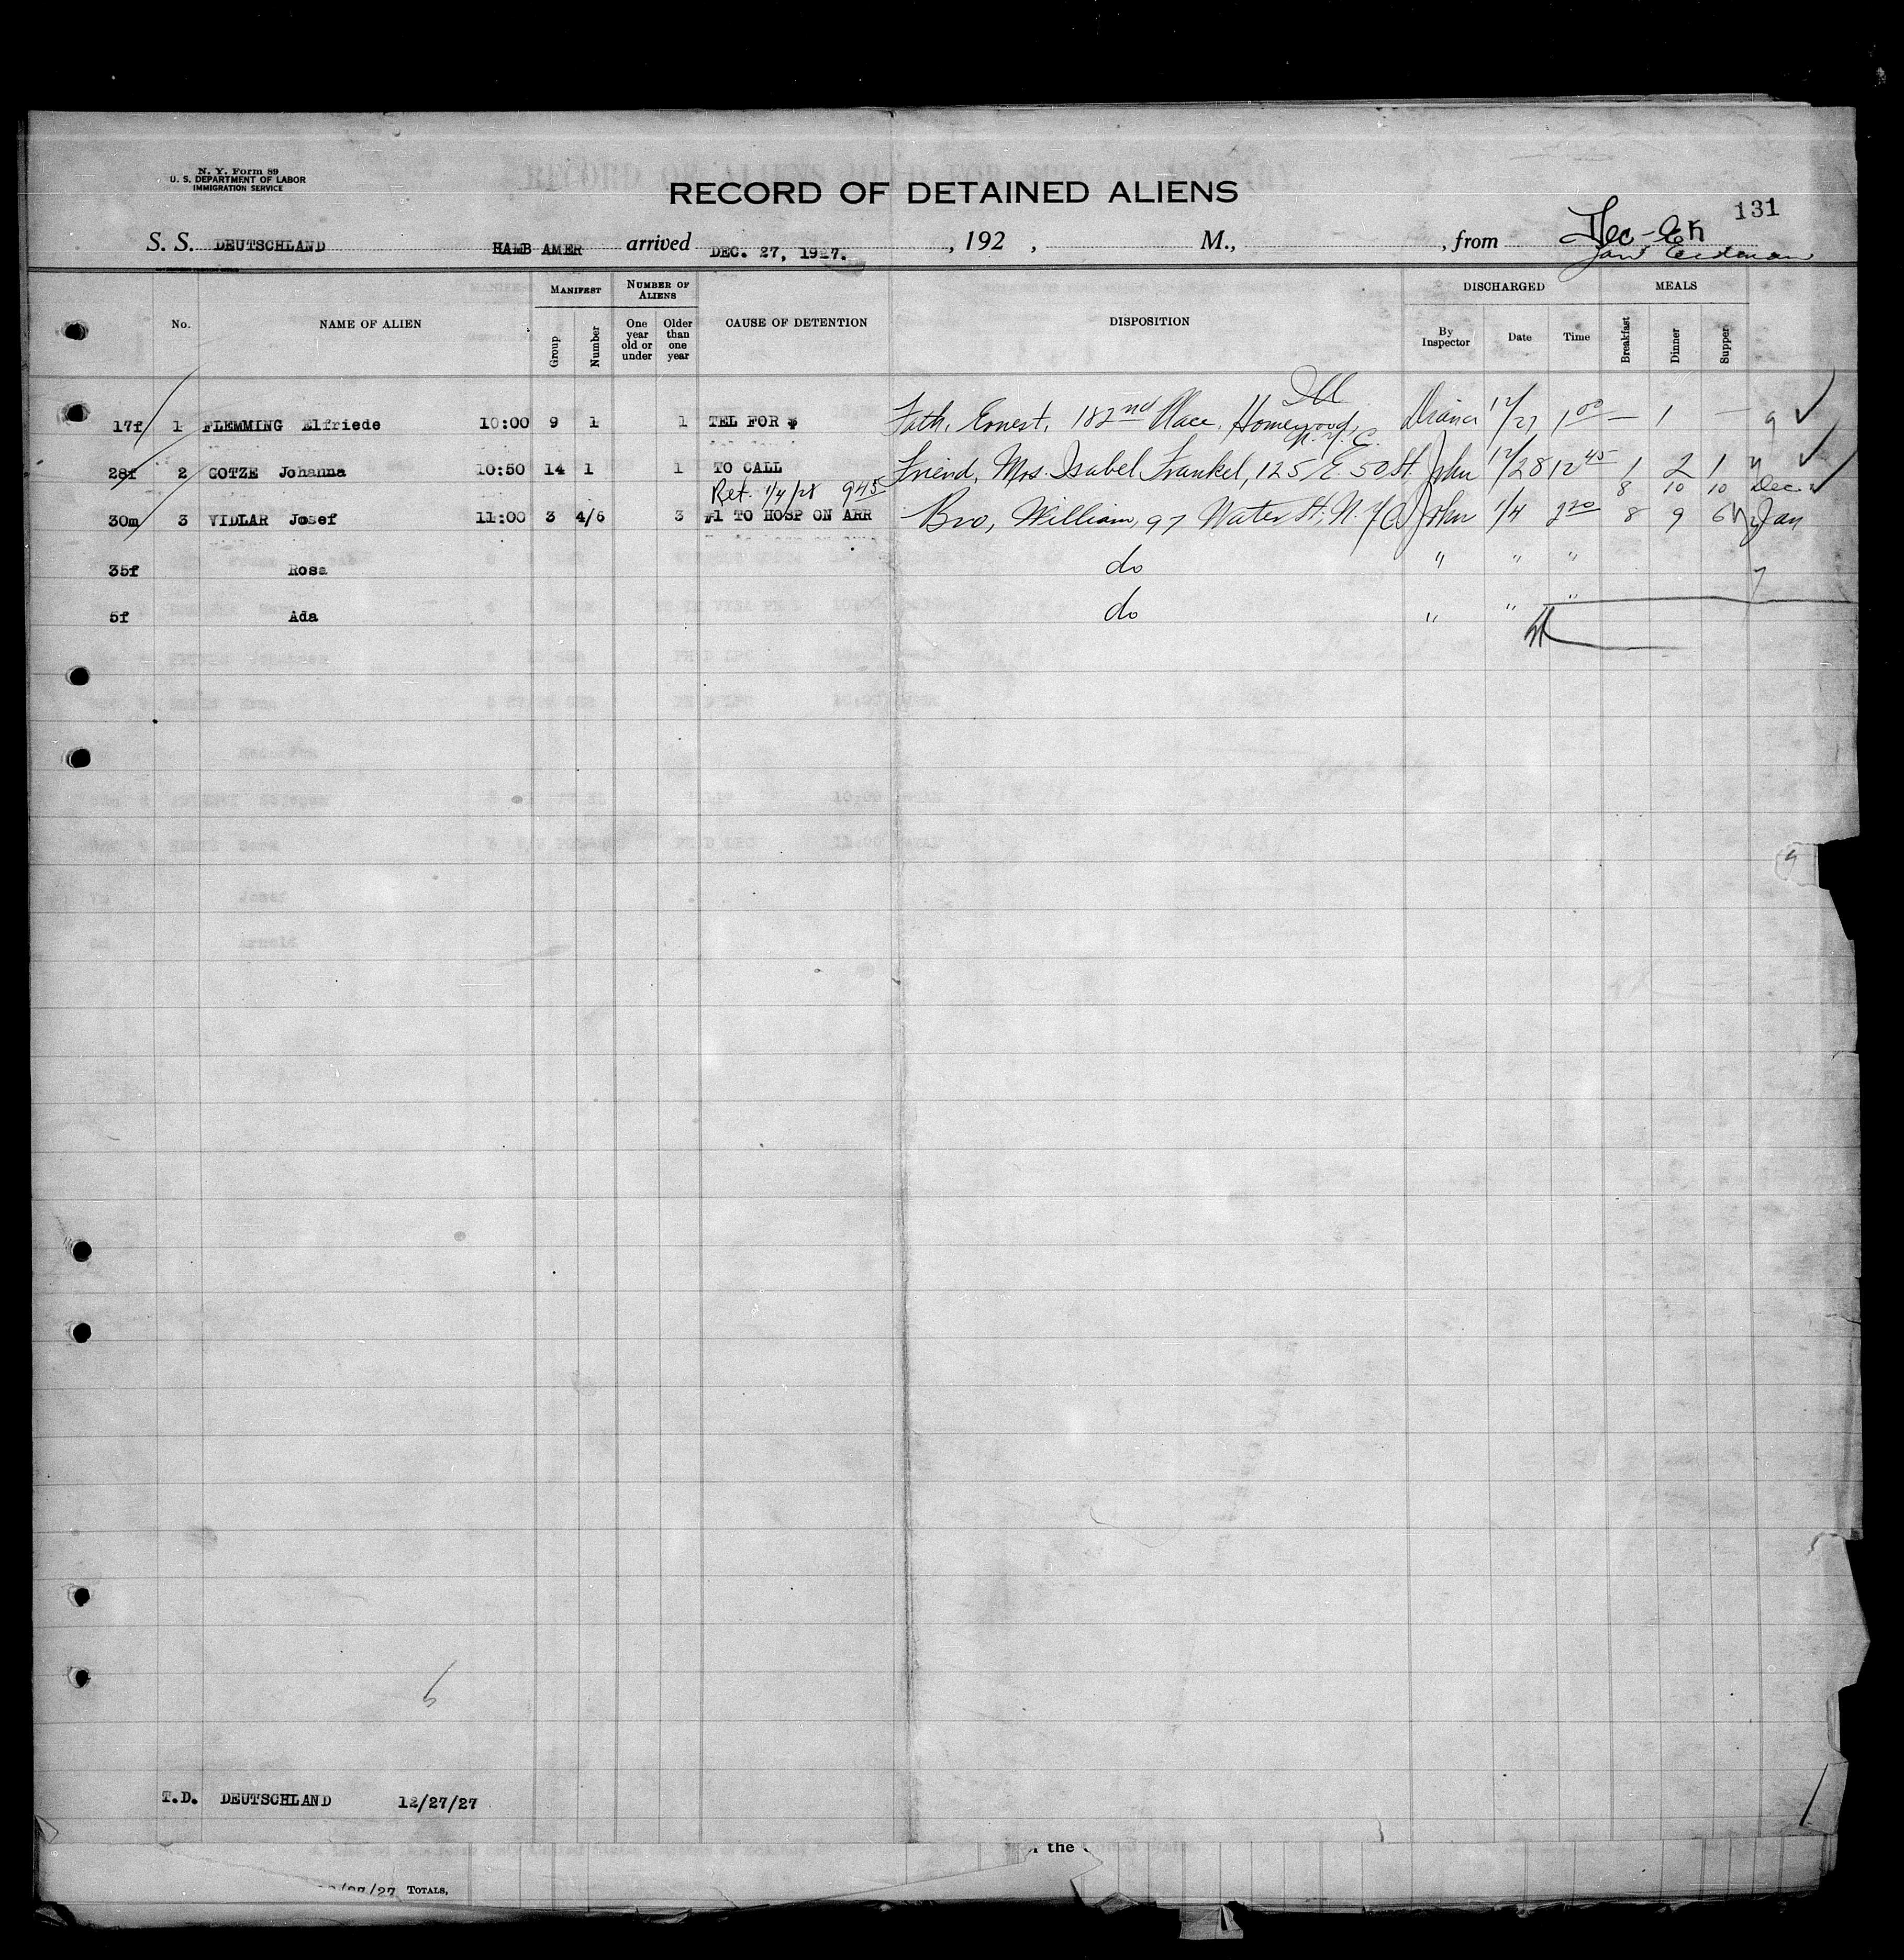 N. Y. Form 89
U. S. DEPARTMENT OF LABOR
IMMIGRATION SERVICE
RECORD OF DETAINED ALIENS
131
S. S. DEUTSCHLAND HAMB AMER arrived DEC. 27, 1927. , 192 , M., , from
No. NAME OF ALIEN MANIFEST Group Number NUMBER OF ALIENS One year old or under Older than one year CAUSE OF DETENTION DISPOSITION DISCHARGED By Inspector Date Time MEALS Breakfast Dinner Supper
Ill
17f 1 FLEMMING Elfriede 10:00 9 1 1 TEL FOR $ Fath, Ernest, 182nd Place, Homewood, 12/27 1 00 — 1 —
N.Y.C.
28f 2 GOTZE Johanna 10:50 14 1 1 TO CALL Friend, Mrs. Isabel Frankel, 125 E. 50 St. John 12/28 12 45 1 2 1
Ret. 1/4/28 9 45 8 10 10 Dec
30m 3 VIDLAR Josef 11:00 3 4/6 3 #1 TO HOSP ON ARR Bro, William, 97 Water St, N.Y.C. John 1/4 2 20 8 9 6 Jan
35f Rosa do " " "
5f Ada do " " "
T.D. DEUTSCHLAND 12/27/27
the
/27 TOTALS,